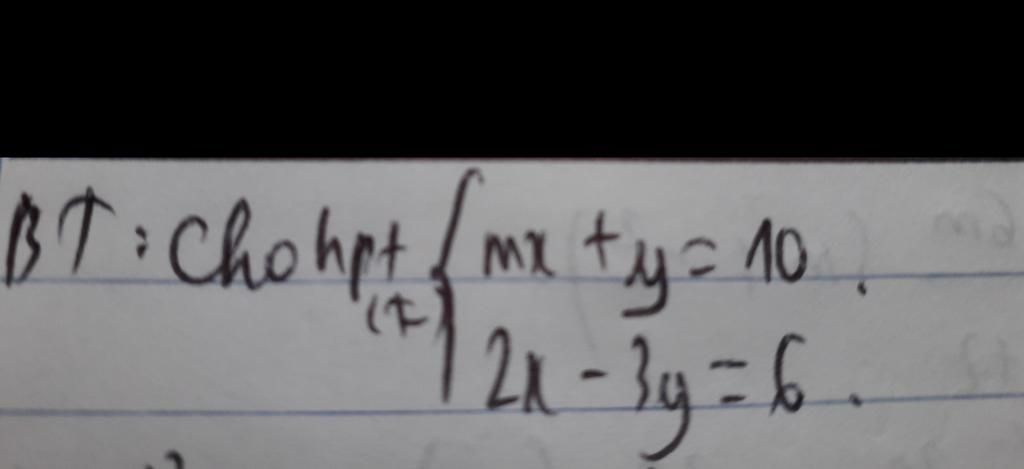 BT: Cho hpt { mx + y = 10 .
(I)
2x - 3y = 6 .